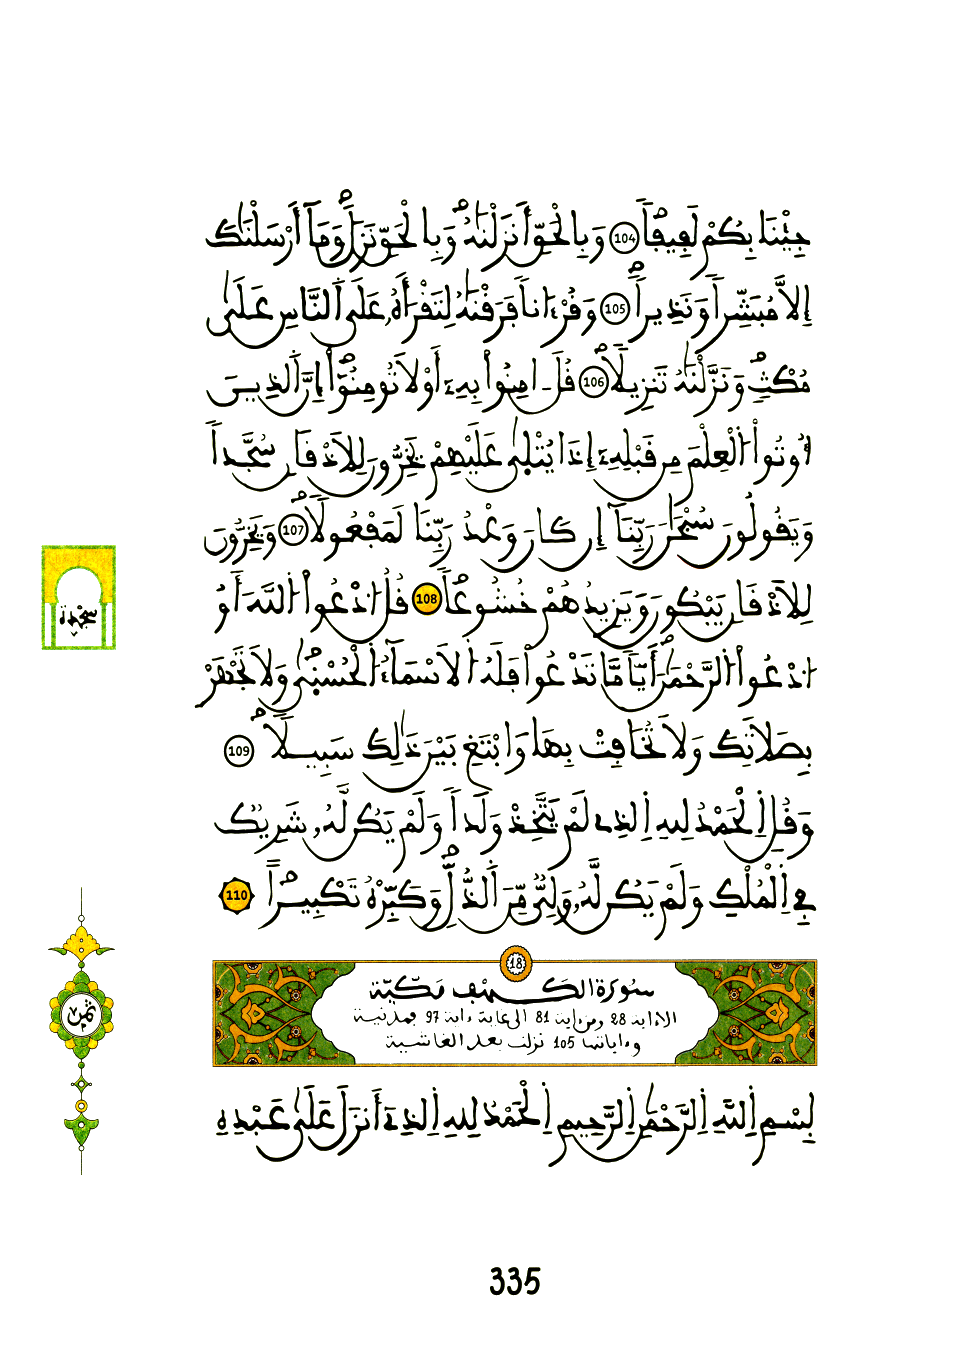 جِئْنَا بِكُمْ لَفِيفاًۖ 104 وَبِالْحَقِّ أَنزَلْنَٰهُ وَبِالْحَقِّ نَزَلَۖ وَمَآ أَرْسَلْنَٰكَ
إِلاَّ مُبَشِّراً وَنَذِيراًۖ 105 وَقُرْءَاناً فَرَقْنَٰهُ لِتَقْرَأَهُۥ عَلَى اَلنَّاسِ عَلَىٰ
مُكْثٖۖ وَنَزَّلْنَٰهُ تَنزِيلاًۖ 106 قُلَ ـ امِنُواْ بِهِۦٓ أَوْ لاَ تُومِنُوٓاْۖ إِنَّ اَلذِينَ
أُوتُواْ اُلْعِلْمَ مِن قَبْلِهِۦٓ إِذَا يُتْلَىٰ عَلَيْهِمْ يَخِرُّونَ لِلَاذْقَانِ سُجَّداً
وَيَقُولُونَ سُبْحَٰنَ رَبِّنَآ إِن كَانَ وَعْدُ رَبِّنَا لَمَفْعُولاًۖ 107 وَيَخِرُّونَ
لِلَاذْقَانِ يَبْكُونَ وَيَزِيدُهُمْ خُشُوعاًۖ 108 قُلُ اُدْعُواْ اُللَّهَ أَوُ
اُدْعُواْ اُلرَّحْمَٰنَۖ أَيّاً مَّا تَدْعُواْ فَلَهُ اُلَاسْمَآءُ اُلْحُسْنَىٰۖ وَلاَ تَجْهَرْ
بِصَلاَتِكَ وَلاَ تُخَافِتْ بِهَا وَابْتَغِ بَيْنَ ذَٰلِكَ سَبِيلاًۖ 109
وَقُلِ اِلْحَمْدُ لِلهِ اِلذِے لَمْ يَتَّخِذْ وَلَداً وَلَمْ يَكُن لَّهُۥ شَرِيكٞ
فِے اِلْمُلْكِ وَلَمْ يَكُن لَّهُۥ وَلِيّٞ مِّنَ اَلذُّلِّۖ وَكَبِّرْهُ تَكْبِيراًۖ 110
سجدة
ثمن
18
سُورَةُ الكَهْفِ مَكِّيَّة
الا ءاية 28 ومن ءاية 81 الى غاية ءاية 97 فمدنية
وءاياتها 105 نزلت بعد الغاشية
بِسْمِ اِللَّهِ اِلرَّحْمَٰنِ اِلرَّحِيمِ اِلْحَمْدُ لِلهِ اِلذِےٓ أَنزَلَ عَلَىٰ عَبْدِهِ
335